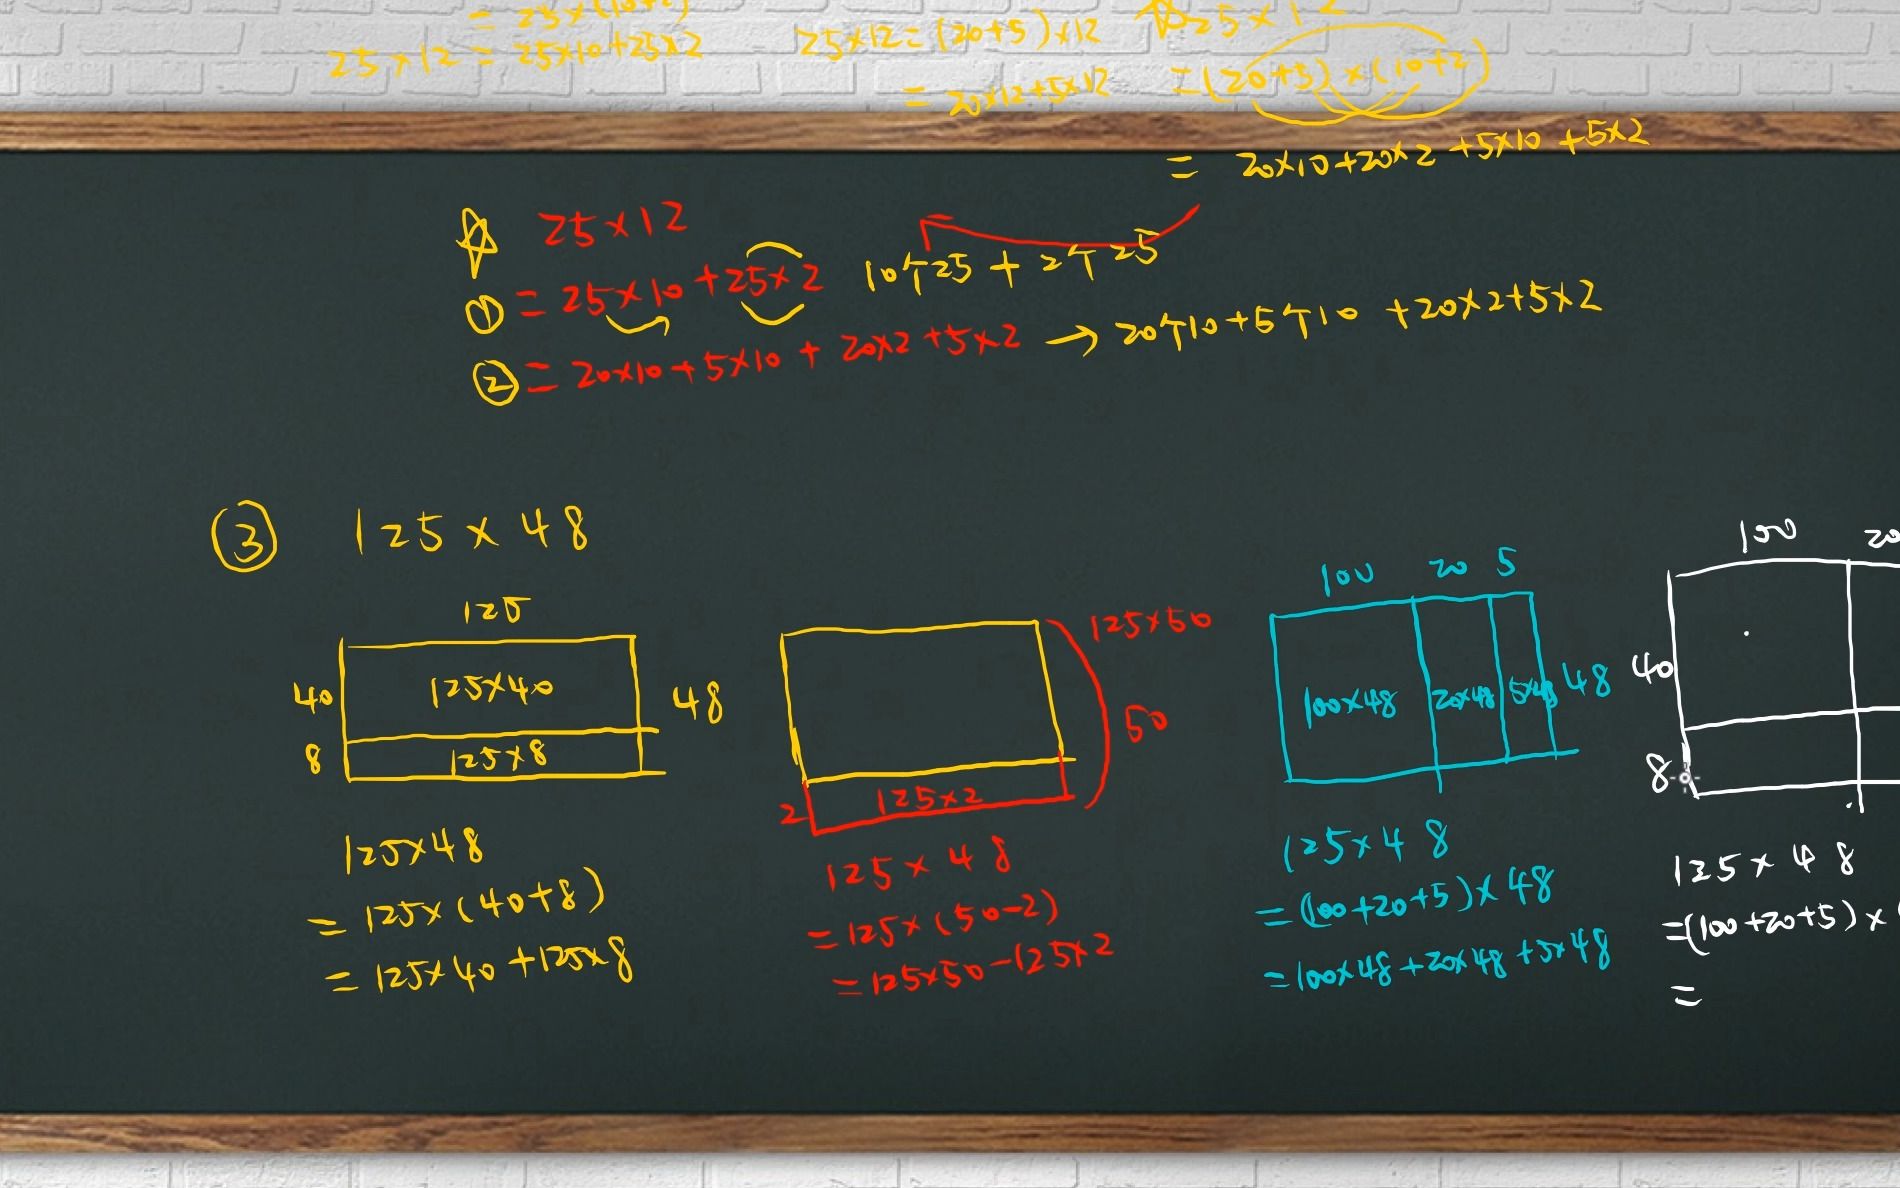 = 25×(10+2)
25×12 = 25×10+25×2
25×12=(20+5)×12
= 20×12+5×12
25×12
=(20+5)×(10+2)
= 20×10+20×2+5×10+5×2
25×12
① = 25×10+25×2 10个25+2个25
② = 20×10+5×10+20×2+5×2 → 20个10+5个10+20×2+5×2
③ 125×48
125
40
125×40
48
8
125×8
125×48
=125×(40+8)
=125×40+125×8
125×50
50
2
125×2
125×48
=125×(50-2)
=125×50-125×2
100 20 5
100×48 20×48 5×48 48
125×48
=(100+20+5)×48
=100×48+20×48+5×48
100 20
40
8
125×48
=(100+20+5)×
=